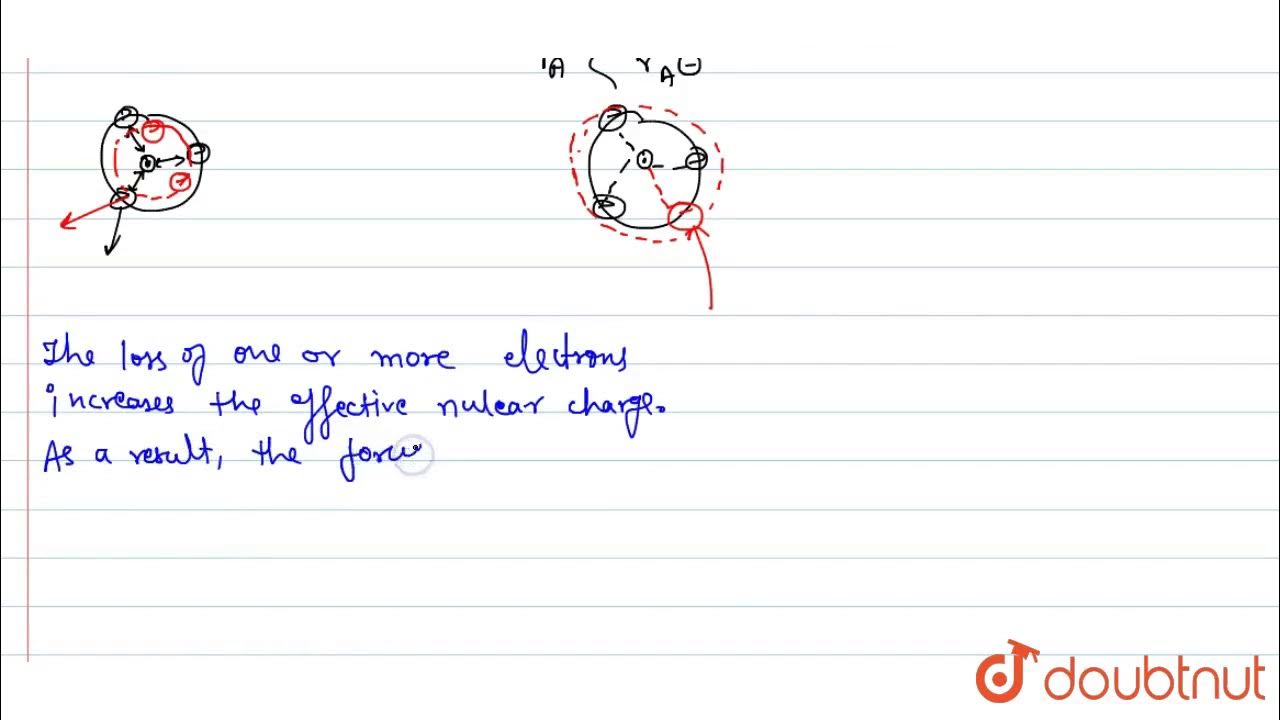 rA < rA⊖
The loss of one or more electrons
increases the effective nulear charge.
As a result, the force
doubtnut